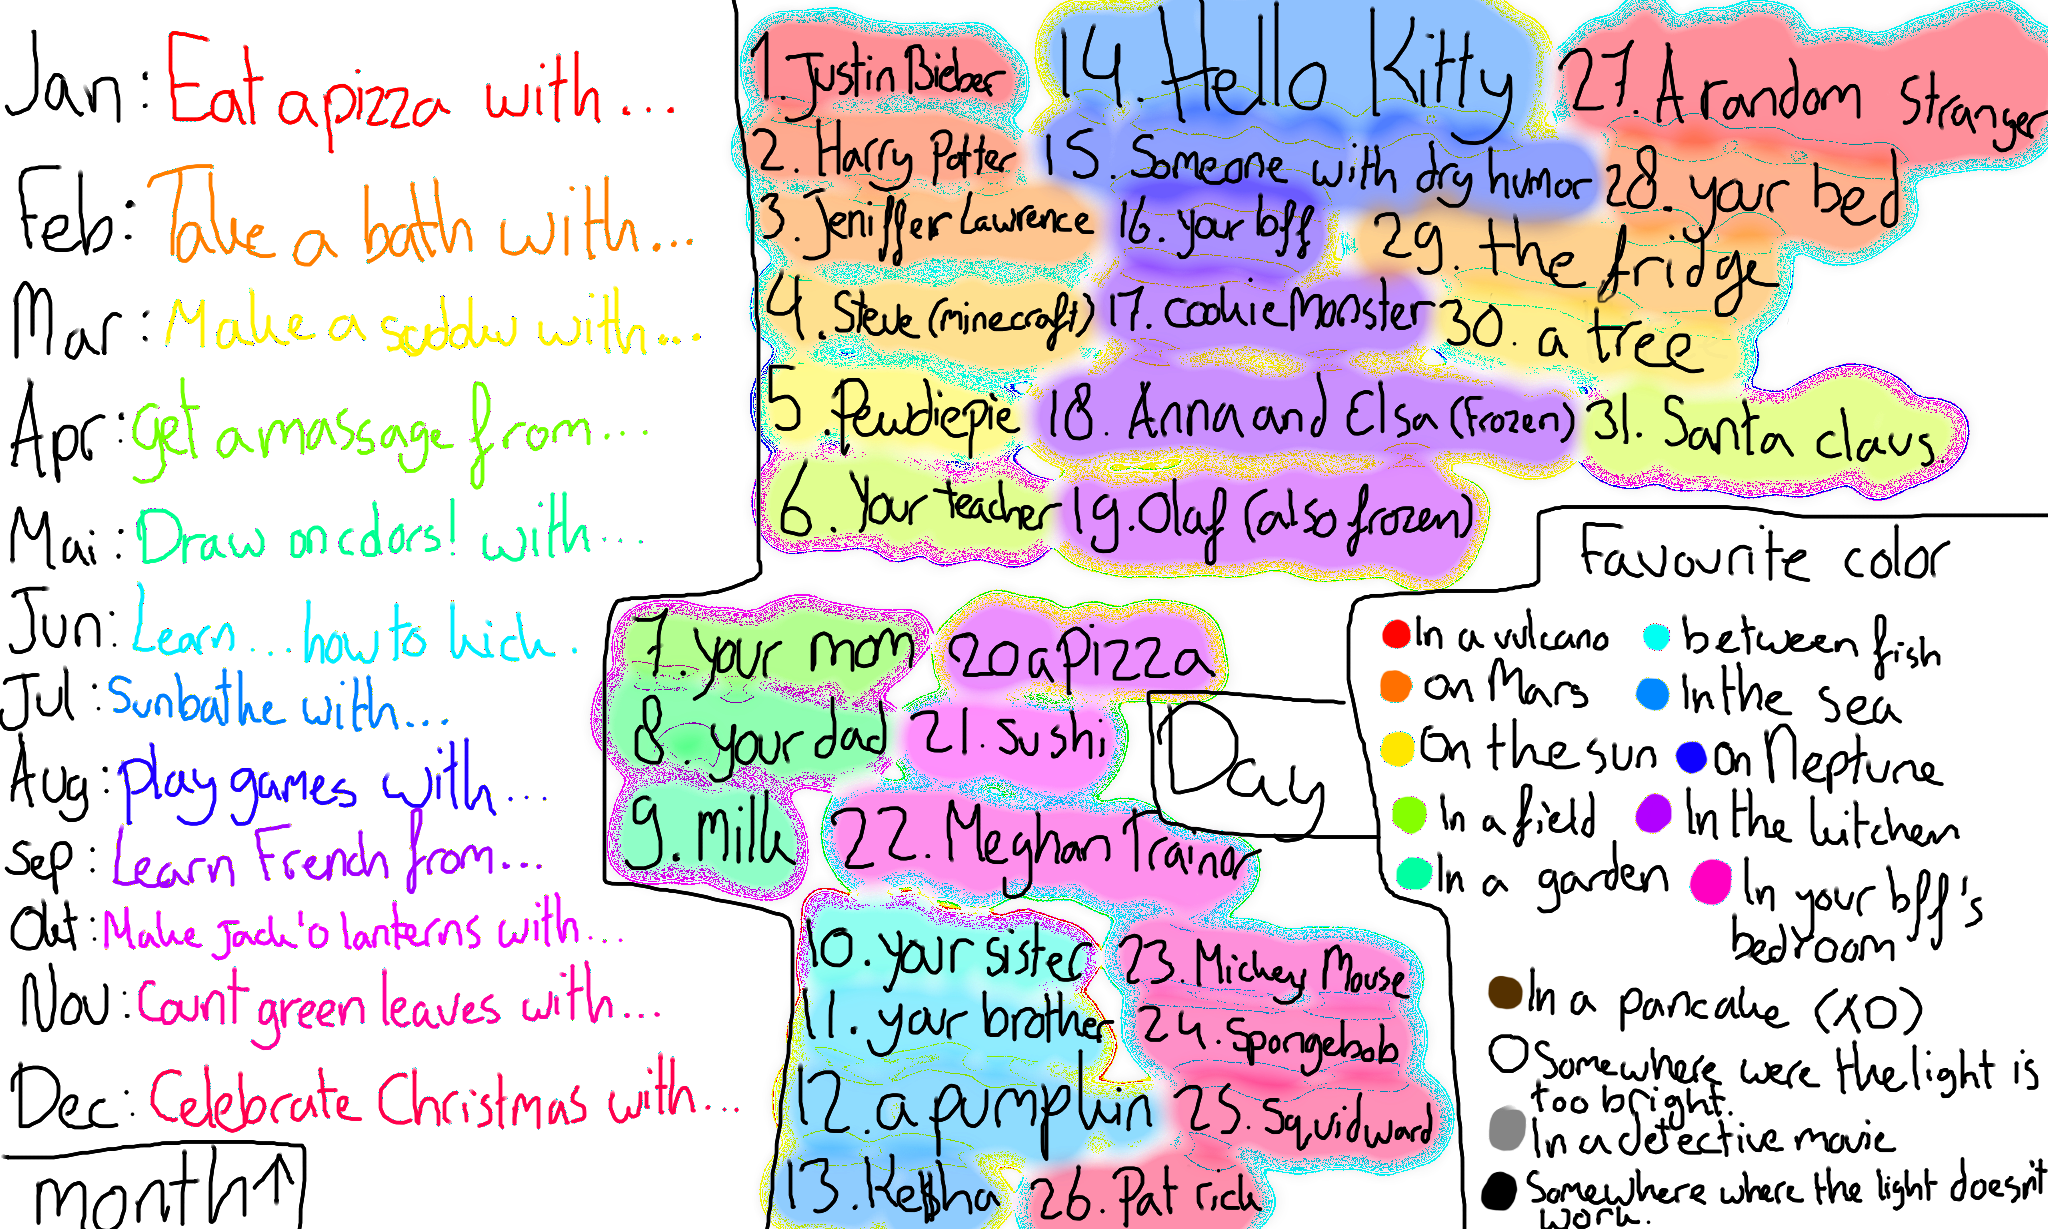 Jan: Eat a pizza with...
Feb: Take a bath with...
Mar: Make a with...
Apr: get a massage from...
Mai: Draw on cdors! with...
Jun: Learn... how to kick.
Jul: Sunbathe with...
Aug: play games with...
Sep: Learn French from...
Okt: Make Jack'o lanterns with...
Nov: Count green leaves with...
Dec: Celebrate Christmas with...
month↑
1. Justin Bieber
2. Harry Potter
3. Jeniffer Lawrence
4. Steve (minecraft)
5. Pewdiepie
6. Your teacher
7. your mom
8. your dad
9. milk
10. your sister
11. your brother
12. a pumpkin
13. Ke$ha
14. Hello Kitty
15. Someone with dry humor
16. your bff
17. cookie Monster
18. Anna and Elsa (Frozen)
19. Olaf (also frozen)
20 a pizza
21. Sushi
22. Meghan Trainor
23. Mickey Mouse
24. Spongebob
25. Squidward
26. Patrick
27. A random stranger
28. your bed
29. the fridge
30. a tree
31. Santa claus.
Day
Favourite color
In a vulcano
on Mars
On the sun
In a field
In a garden
between fish
In the sea
on Neptune
In the kitchen
In your bff's
bedroom
In a pancake (XD)
Somewhere were the light is
too bright.
In a detective movie
Somewhere where the light doesn't
work.